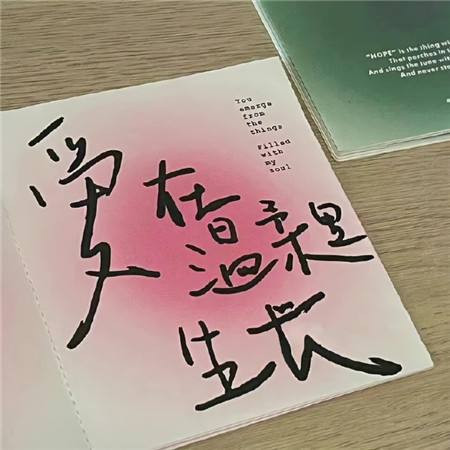 You
emerge
from
the
things
Filled
with
my
soul
爱
在温柔里
生长
"HOPE" is the thing wi
That perches in
And sings the tune wit
And never sto